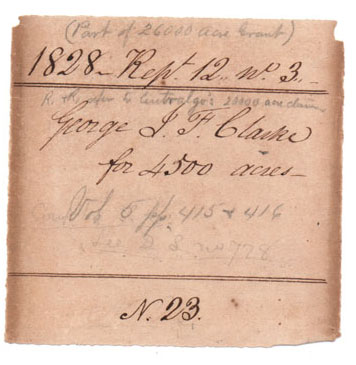 (Part of 26000 acre Grant)
1828 - Rept. 12. No. 3. -
acre claim
George J. F. Clarke
for 4500 acres -
Vol 5 pp. 415 + 416
See 2 S no 778
N. 23.